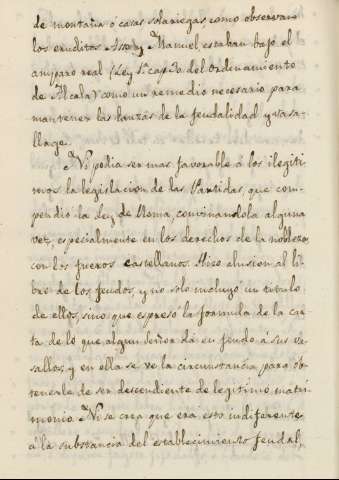 de montaña o casas solariegas, como observaron
los eruditos Asso y Manuel estaban bajo el
amparo real (Ley 1ª cap 30. del Ordenamiento
de Alcala) como un remedio necesario para
mantener las de la feudalidad y vasa-
llage.
Ni podia ser mas favorable á los ilegiti-
mos la legislacion de las Partidas, que com-
pendió la Ley de Roma, convinandola alguna
vez, especialmente en los derechos de la nobleza,
con los fueros castellanos. Hizo alusion al li-
bro de los feudos, y no solo incluyó un titulo
de ellos, sino que espresó la formula de la car-
ta de lo que algun señor da en feudo á sus va-
sallos, y en ella se ve la circunstancia para ob-
tenerle de ser descendiente de legitimo matri-
monio. Ni se crea que era esto indiferente
á la substancia del establecimiento feudal,